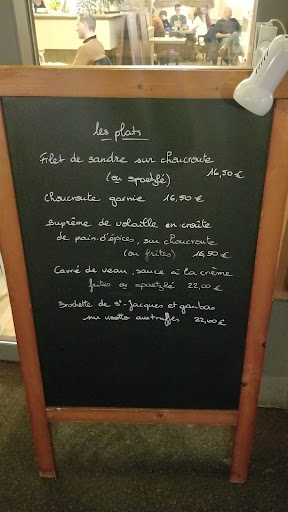 les plats
Filet de sandre sur choucroute
(ou spaetzlé) 16,50 €
Choucroute garnie 16,50 €
Suprême de volaille en croûte
de pain d'épices, sur choucroute
(ou frites) 16,50 €
Carré de veau, sauce à la crème
frites ou spaetzlé 22,00 €
Brochette de St-Jacques et gambas
sur risotto aux truffes 22,00 €